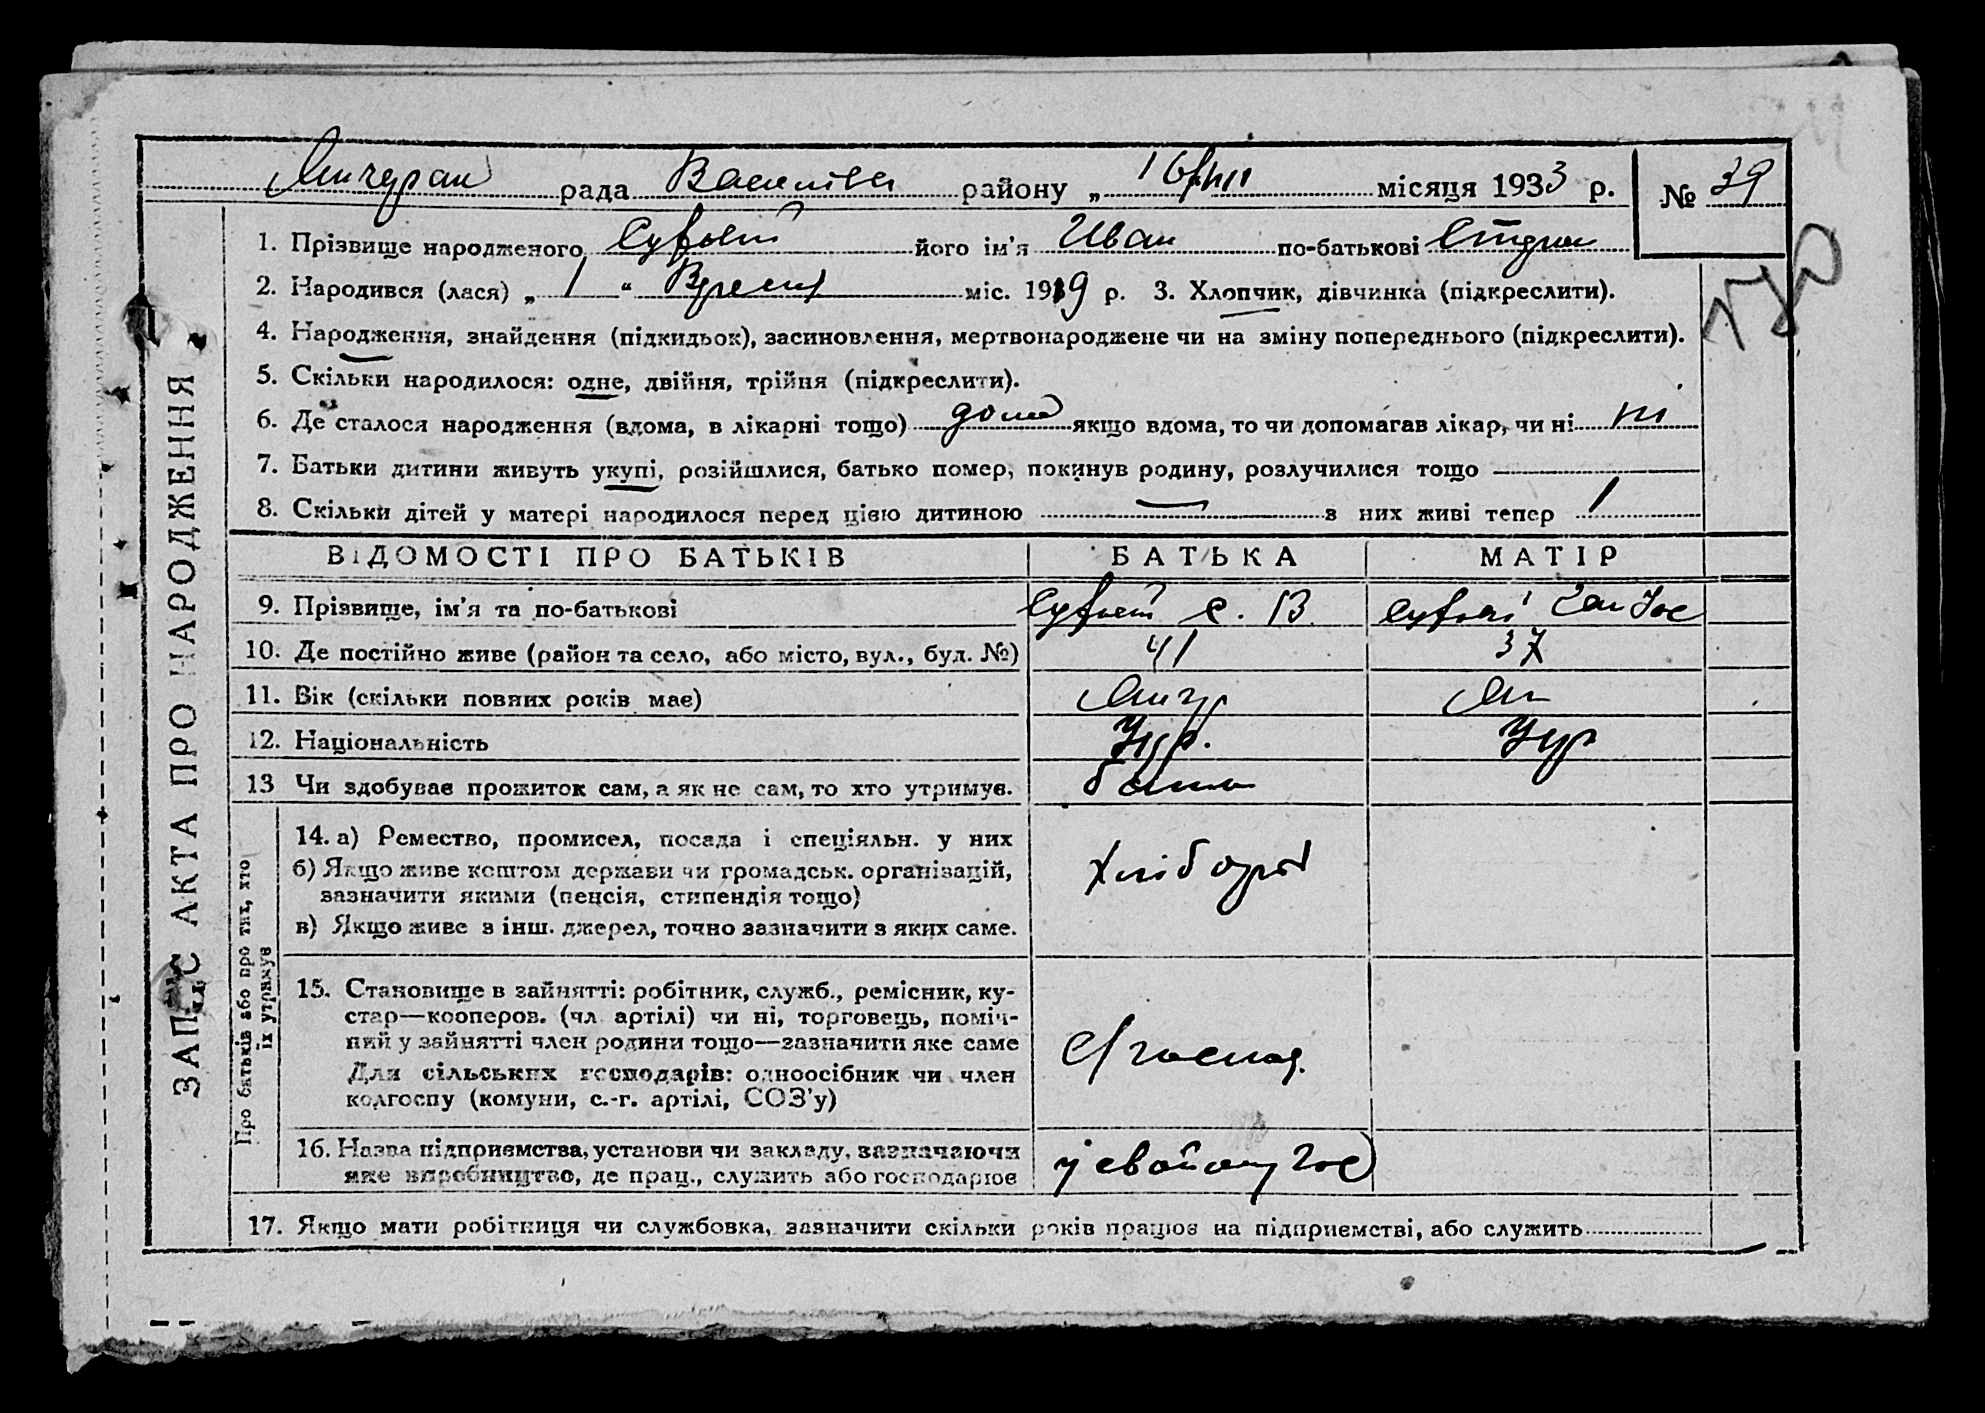 рада района „ 16/VIII місяця 1933 р. № 39
1. Прізвище народженого його ім'я Иван по-батькові
2. Народився (лася) „ 1 “ міс. 1919 р. 3. Хлопчик, дівчинка (підкреслити).
4. Народження, знайдення (підкидьок), засиновлення, мертвонароджене чи на зміну попереднього (підкреслити).
5. Скільки народилося: одне, двійня, трійня (підкреслити).
6. Де сталося народження (вдома, в лікарні тощо) дома якщо вдома, то чи допомагав лікар, чи ні ні
7. Батьки дитини живуть укупі, розійшлися, батько помер, покинув родину, розлучилися тощо
8. Скільки дітей у матері народилося перед цією дитиною — з них живі тепер 1
ВІДОМОСТІ ПРО БАТЬКІВ БАТЬКА МАТІР
9. Прізвище, ім'я та по-батькові
10. Де постійно живе (район та село, або місто, вул., буд. №) 41 37
11. Вік (скільки повних років має)
12. Національність Укр. Укр
13 Чи здобуває прожиток сам, а як не сам, то хто утримує.
14. а) Ремество, промисел, посада і спеціяльн. у них
б) Якщо живе коштом держави чи громадськ. організацій,
зазначити якими (пенсія, стипендія тощо)
в) Якщо живе з інш. джерел, точно зазначити з яких саме.
хлібороб
15. Становище в зайнятті: робітник, служб., ремісник, ку-
стар—кооперов. (чл. артілі) чи ні, торговець, поміч-
ний у зайнятті член родини тощо—зазначити яке саме
Для сільських господарів: одноосібник чи член
колгоспу (комуни, с.-г. артілі, СОЗ'у)
16. Назва підприємства, установи чи закладу, зазначаючи
яке виробництво, де прац., служить або господарює
у свойому гос
17. Якщо мати робітниця чи службовка, зазначити скільки років працює на підприємстві, або служить
ЗАПИС АКТА ПРО НАРОДЖЕННЯ
Про батьків або про тих, хто
їх утримує